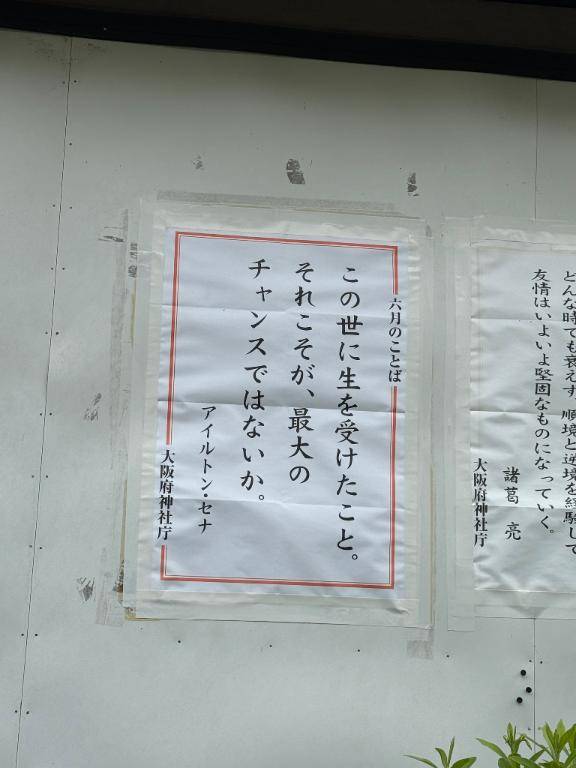 六月のことば
この世に生を受けたこと。
それこそが、最大の
チャンスではないか。
アイルトン・セナ
大阪府神社庁
どんな時でも衰えず、順境と逆境を経験して
友情はいよいよ堅固なものになっていく。
諸葛 亮
大阪府神社庁